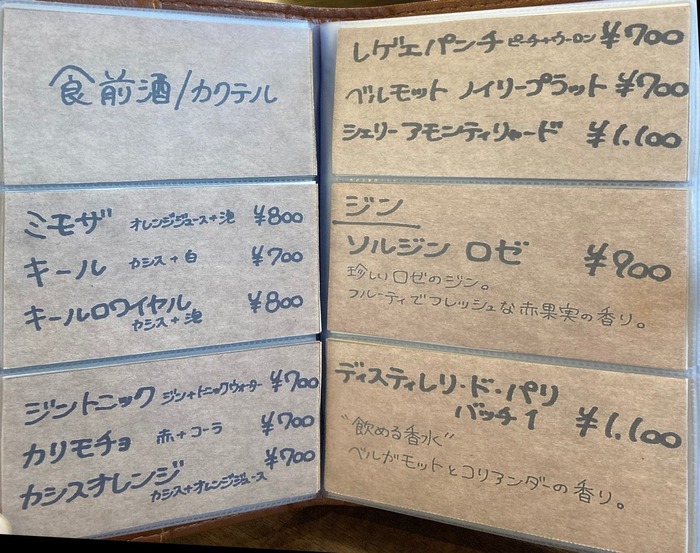 食前酒/カクテル
ミモザ オレンジジュース+泡 ¥800
キール カシス+白 ¥700
キールロワイヤル ¥800
カシス+泡
ジントニック ジン+トニックウォーター ¥700
カリモチョ 赤+コーラ ¥700
カシスオレンジ ¥700
カシス+オレンジジュース
レゲエパンチ ピーチ+ウーロン ¥700
ベルモット ノイリープラット ¥700
シェリー アモンティリャード ¥1.100
ジン
ソルジン ロゼ ¥900
珍しいロゼのジン。
フルーティでフレッシュな赤果実の香り。
ディスティレリ・ド・パリ
バッチ1 ¥1.100
"飲める香水"
ベルガモットとコリアンダーの香り。